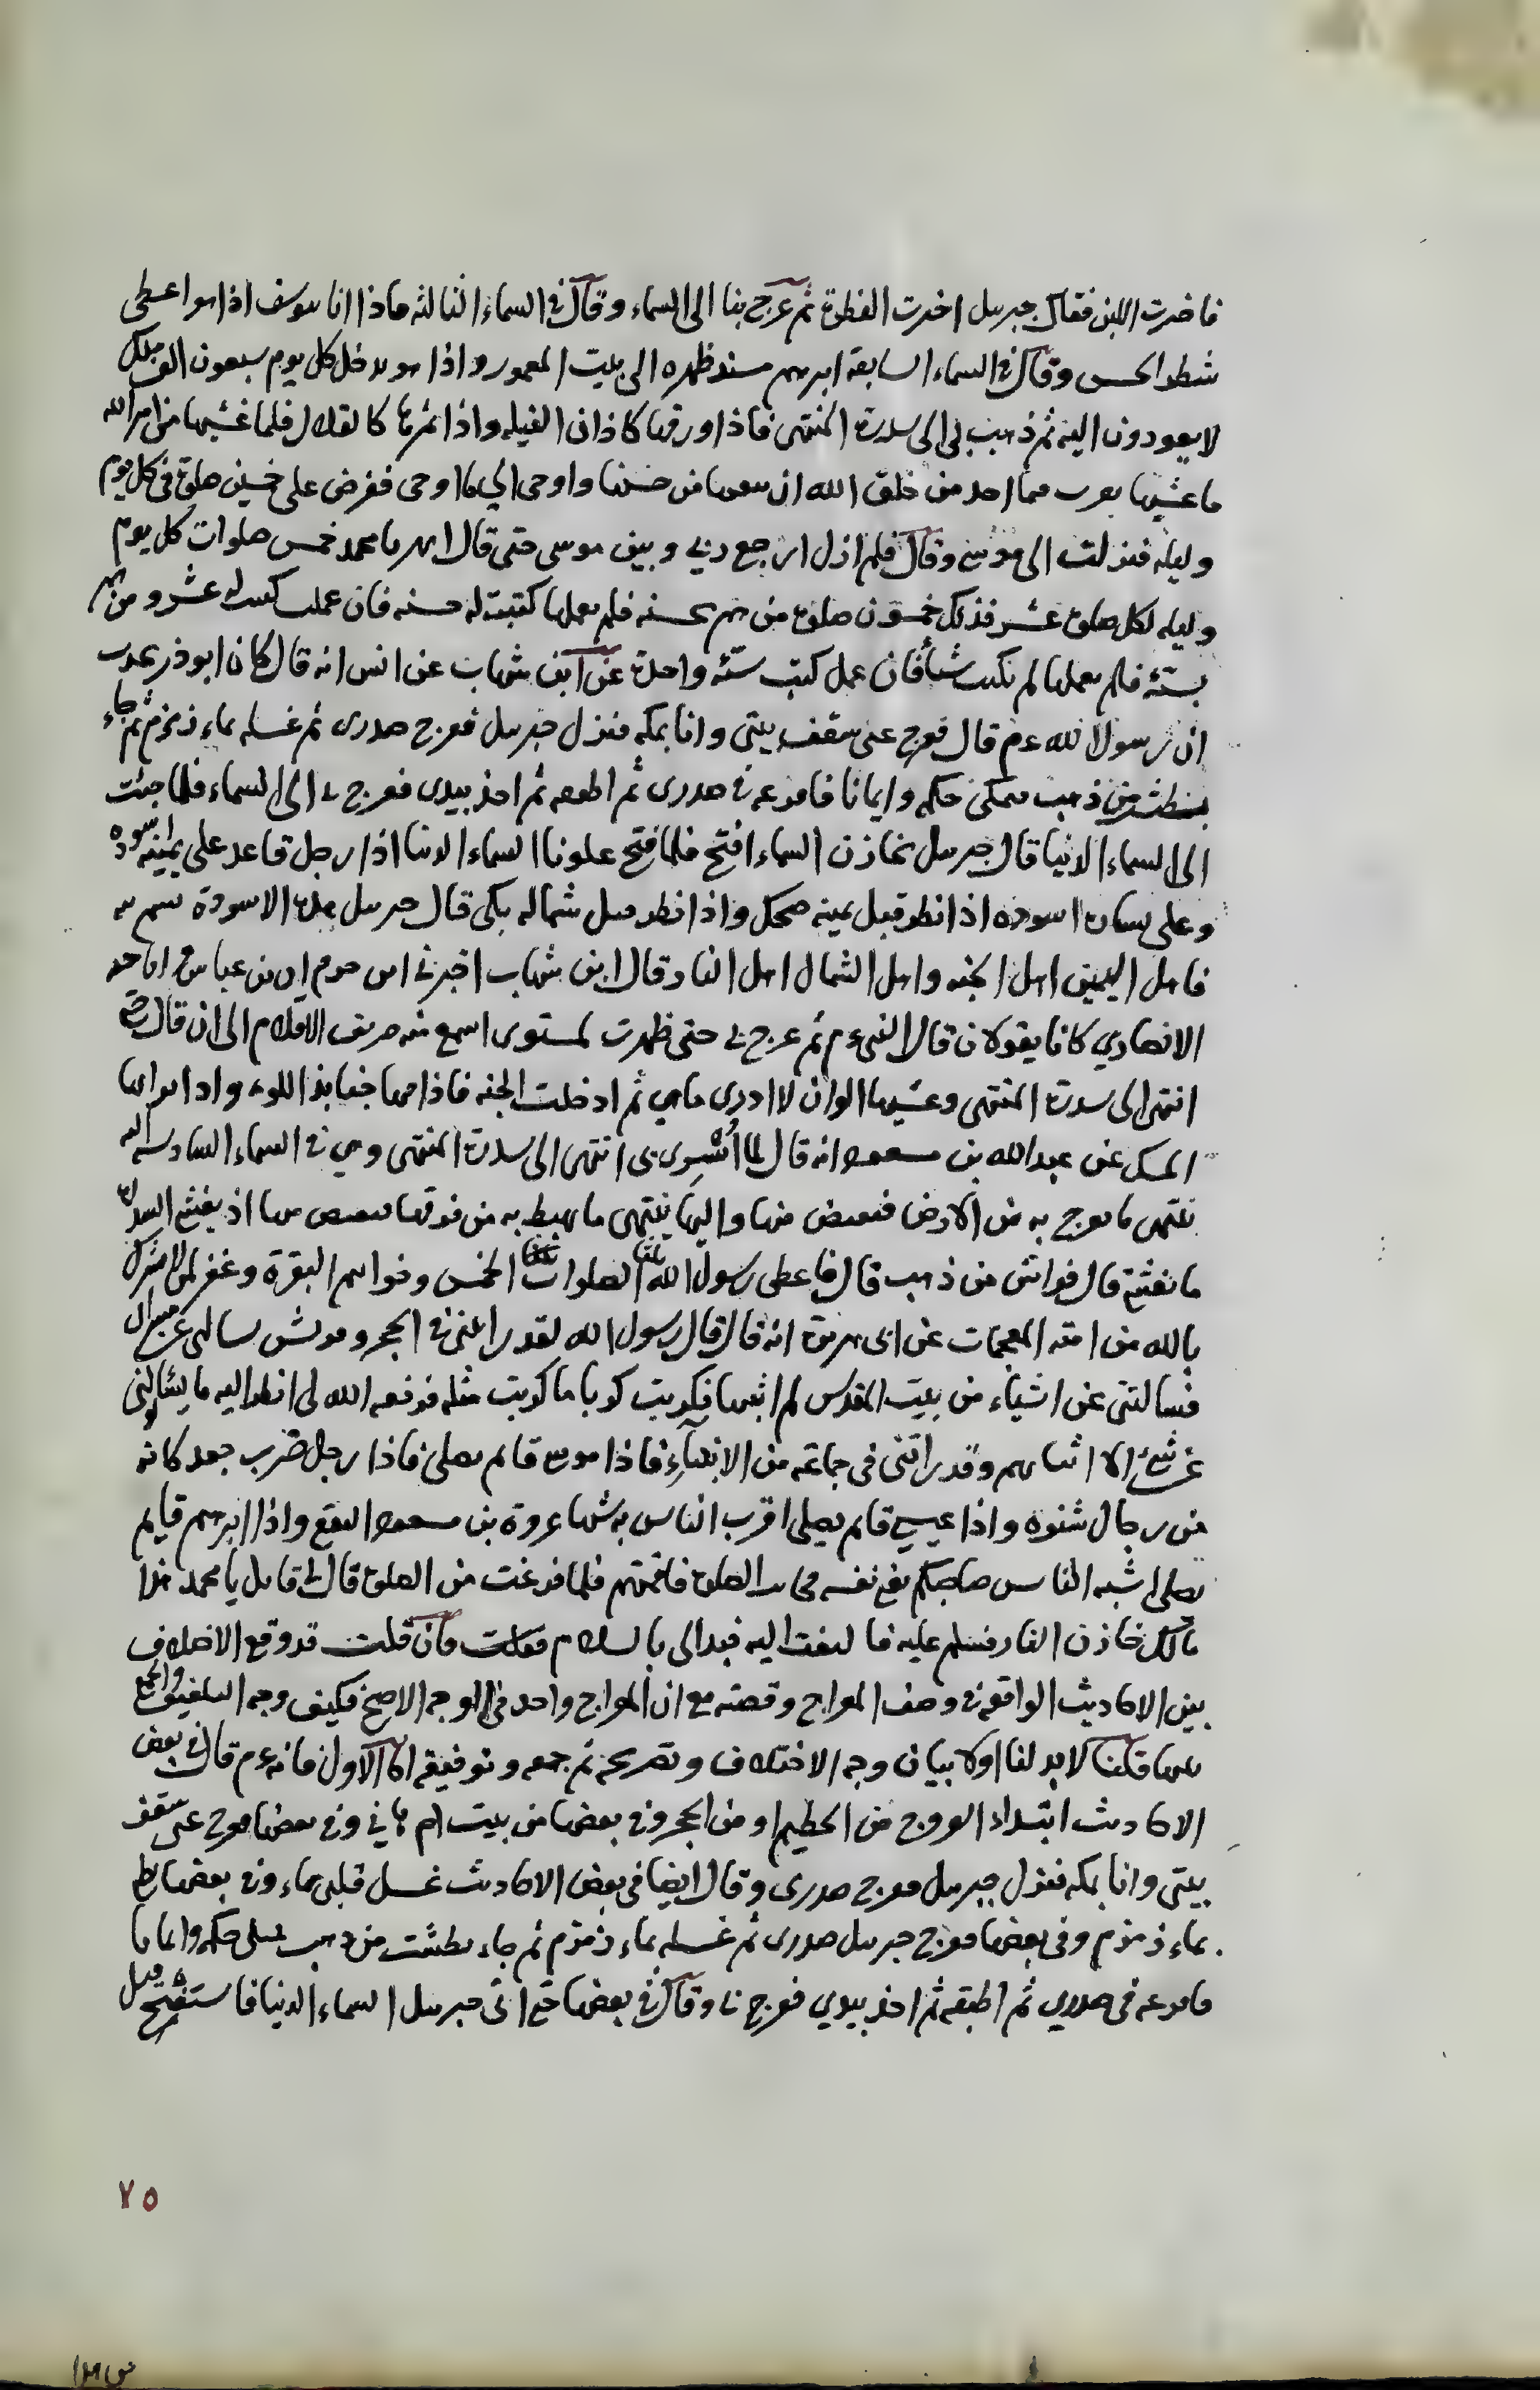 فاخترت اللبن فقال جبرسل اخترت الفطرة ثم عرج بنا الى السماء وقال فى السماء الثالثه فاذا انا بيوسف اذا هو اعطى
شطر الحسن وقال فى السماء السابعة ابرهيم مسند ظهره الى بيت المعمور واذا هو يدخل كل يوم سبعون الف ملك
لا يعودون اليه ثم ذهب بى الى سدرة المنتهى فاذا ورقها كاذان الفيله واذا ثمرها كالقلال فلما غشيها من امر الله
ما غشيها احد من خلق الله ان ينعتها من حسنها واوحى الي ما اوحى ففرض على خمسين صلوة فى كل يوم
وليله فنزلت الى موسى وقال فلم ازل ارجع ربي وبين موسى حتى قال انهن يا محمد خمس صلوات كل يوم
وليله لكل صلوة عشر فذلك خمسون صلوة من هم بحسنه فلم يعملها كتبت له حسنه فان عملت كتبت له عشر و من هم
بسيئه فلم يعملها لم تكتب شيأ فان عمل كتب سيئه واحدة عن ابن شهاب عن انس انه قال كان ابوذر يحدث
ان رسول الله عم قال فرج عنى سقف بيتى وانا بمكه فنزل جبرسل ففرج صدرى ثم غسله بماء زمزم ثم جاء
بطشت من ذهب ممتلى حكمه وايمانا فافرغه فى صدرى ثم اطبقه ثم اخذ بيدى فعرج بى الى السماء فلما جئت
الى السماء الدنيا قال جبرسل لخازن السماء افتح فلما فتح علونا السماء الدنيا اذا رجل قاعد على يمينه اسوده
وعلى يساره اسوده اذا نظر قبل يمينه ضحك واذا نظر قبل شماله بكى قال جبرسل هذه الاسودة نسم بنيه
فاهل اليمين اهل الجنه واهل الشمال اهل النار وقال ابن شهاب اخبرنى ابن حزم ان ابن عباس و ابا حبه
الانصاري كانا يقولان قال النبى عم ثم عرج بى حتى ظهرت لمستوى اسمع فيه صريف الاقلام الى ان قال حتى
انتهى الى سدرة المنتهى وغشيها الوان لا ادرى ماهي ثم ادخلت الجنه فاذا فيها جنابذ اللولوء واذا ترابها
المسك عن عبد الله بن مسعود انه قال لما اُسْرِى بى انتهى الى سدرة المنتهى وهي فى السماء السادسه اليه
ينتهى ما يعرج به من الارض فيقبض منها واليها ينتهى ما يهبط به من فوقها فيقبض منها اذ يغشى السدرة
ما يغشى قال فراش من ذهب قال فاعطى رسول الله ثلثا الصلوات الخمس وخواتيم البقرة وغفر لمن لا يشرك
بالله من امته المقحمات عن ابى هريرة انه قال قال رسول الله لقد رايتنى فى الحجر وقريش يسالنى عن مسراى
فسالتنى عن اشياء من بيت المقدس لم اثبتها فكربت كربا ما كربت مثله فرفعه الله لى انظر اليه ما يسئالونى
عن شئ الا انبأتهم وقد رايتنى فى جماعة من الانبيآء فاذا موسى قائم يصلى فاذا رجل ضرب جعد كانه
من رجال شنوة واذا عيسى قائم يصلى اقرب الناس به شبها عروة بن مسعود الثقفي واذا ابرهيم قايم
يصلى اشبه الناس صاحبكم يعنى نفسه فحانت الصلوة فاممتهم فلما فرغت من الصلوة قال لى قايل يا محمد هذا
مالك خازن النار فسلم عليه فالتفت اليه فبدانى بالسلام فان قلت قد وقع الاختلاف
بين الاحاديث الواقعه فى وصف المعراج وقصته مع ان المعراج واحد فى الوجه الاصح فكيف وجه التلفيق والجمع
بينها قلنا لابد لنا اولا بيان وجه الاختلاف وتصريحه ثم جمعه وتوفيقه اما الاول فانه عم قال فى بعض
الاحاديث ابتداء العروج من الحطيم او من الحجر وفى بعضها من بيت ام هاني وفى بعضها فرج عنى سقف
بيتى وانا بمكه فنزل جبرسل ففرج صدرى وقال ايضا فى بعض الاحاديث غسل قلبى بماء وفى بعضها بطنى
بماء زمزم وفى بعضها ففرج جبرسل صدرى ثم غسله بماء زمزم ثم جاء بطشت من ذهب ممتلى حكمه وايمانا
فافرغه فى صدري ثم اطبقه ثم اخذ بيدي فعرج بى وقال فى بعضها حتى اتى جبرسل السماء الدنيا فاستفتح قيل
٧٥